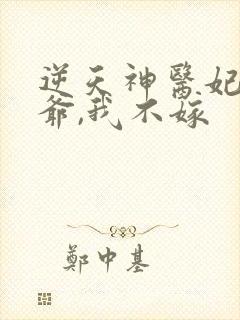 逆天神醫妃
爺,我不嫁
鄭中基